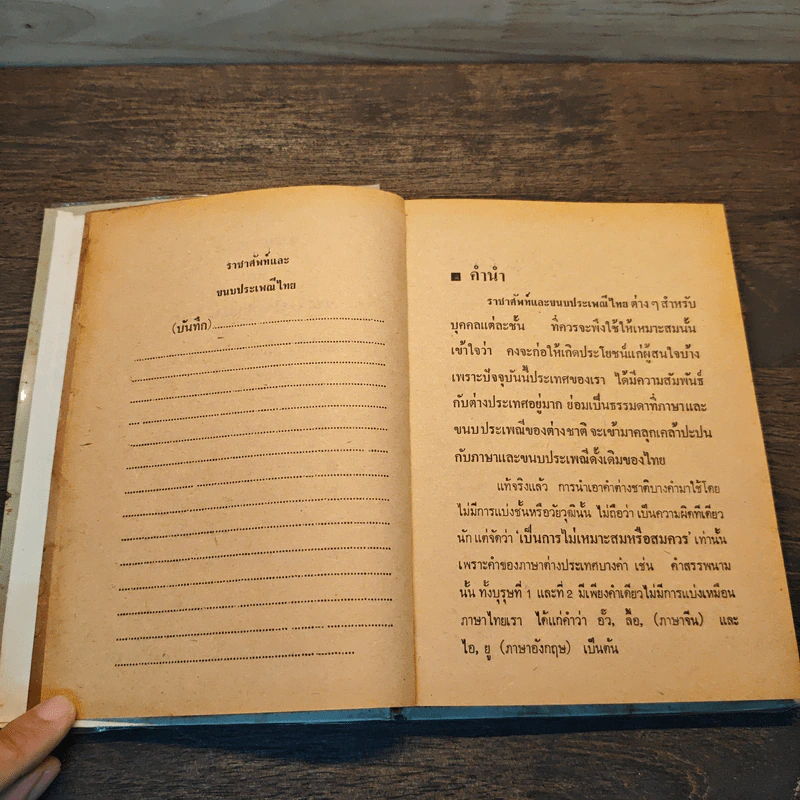 ราชาศัพท์และ
ขนบประเพณีไทย
(บันทึก)
■ คำนำ
ราชาศัพท์และขนบประเพณีไทย ต่าง ๆ สำหรับ
บุคคลแต่ละชั้น ที่ควรจะพึงใช้ให้เหมาะสมนั้น
เข้าใจว่า คงจะก่อให้เกิดประโยชน์แก่ผู้สนใจบ้าง
เพราะปัจจุบันนี้ประเทศของเรา ได้มีความสัมพันธ์
กับต่างประเทศอยู่มาก ย่อมเป็นธรรมดาที่ภาษาและ
ขนบประเพณีของต่างชาติ จะเข้ามาคลุกเคล้าปะปน
กับภาษาและขนบประเพณีดั้งเดิมของไทย
แท้จริงแล้ว การนำเอาคำต่างชาติบางคำมาใช้โดย
ไม่มีการแบ่งชั้นหรือวัยวุฒินั้น ไม่ถือว่า เป็นความผิดทีเดียว
นัก แต่จัดว่า 'เป็นการไม่เหมาะสมหรือสมควร' เท่านั้น
เพราะคำของภาษาต่างประเทศบางคำ เช่น คำสรรพนาม
นั้น ทั้งบุรุษที่ 1 และที่ 2 มีเพียงคำเดียวไม่มีการแบ่งเหมือน
ภาษาไทยเรา ได้แก่คำว่า อั๊ว, ลื้อ, (ภาษาจีน) และ
ไอ, ยู (ภาษาอังกฤษ) เป็นต้น